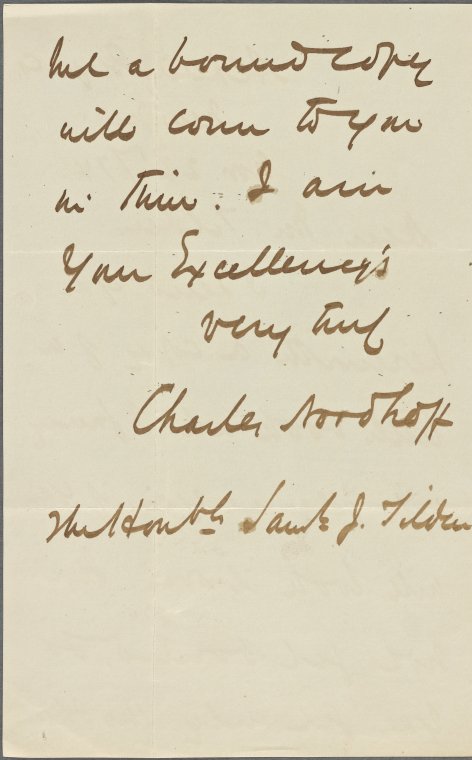 but a bound copy
will come to you
in time. I am
Your Excellency's
very truly
Charles Nordhoff
The Honble Saml. J. Tilden